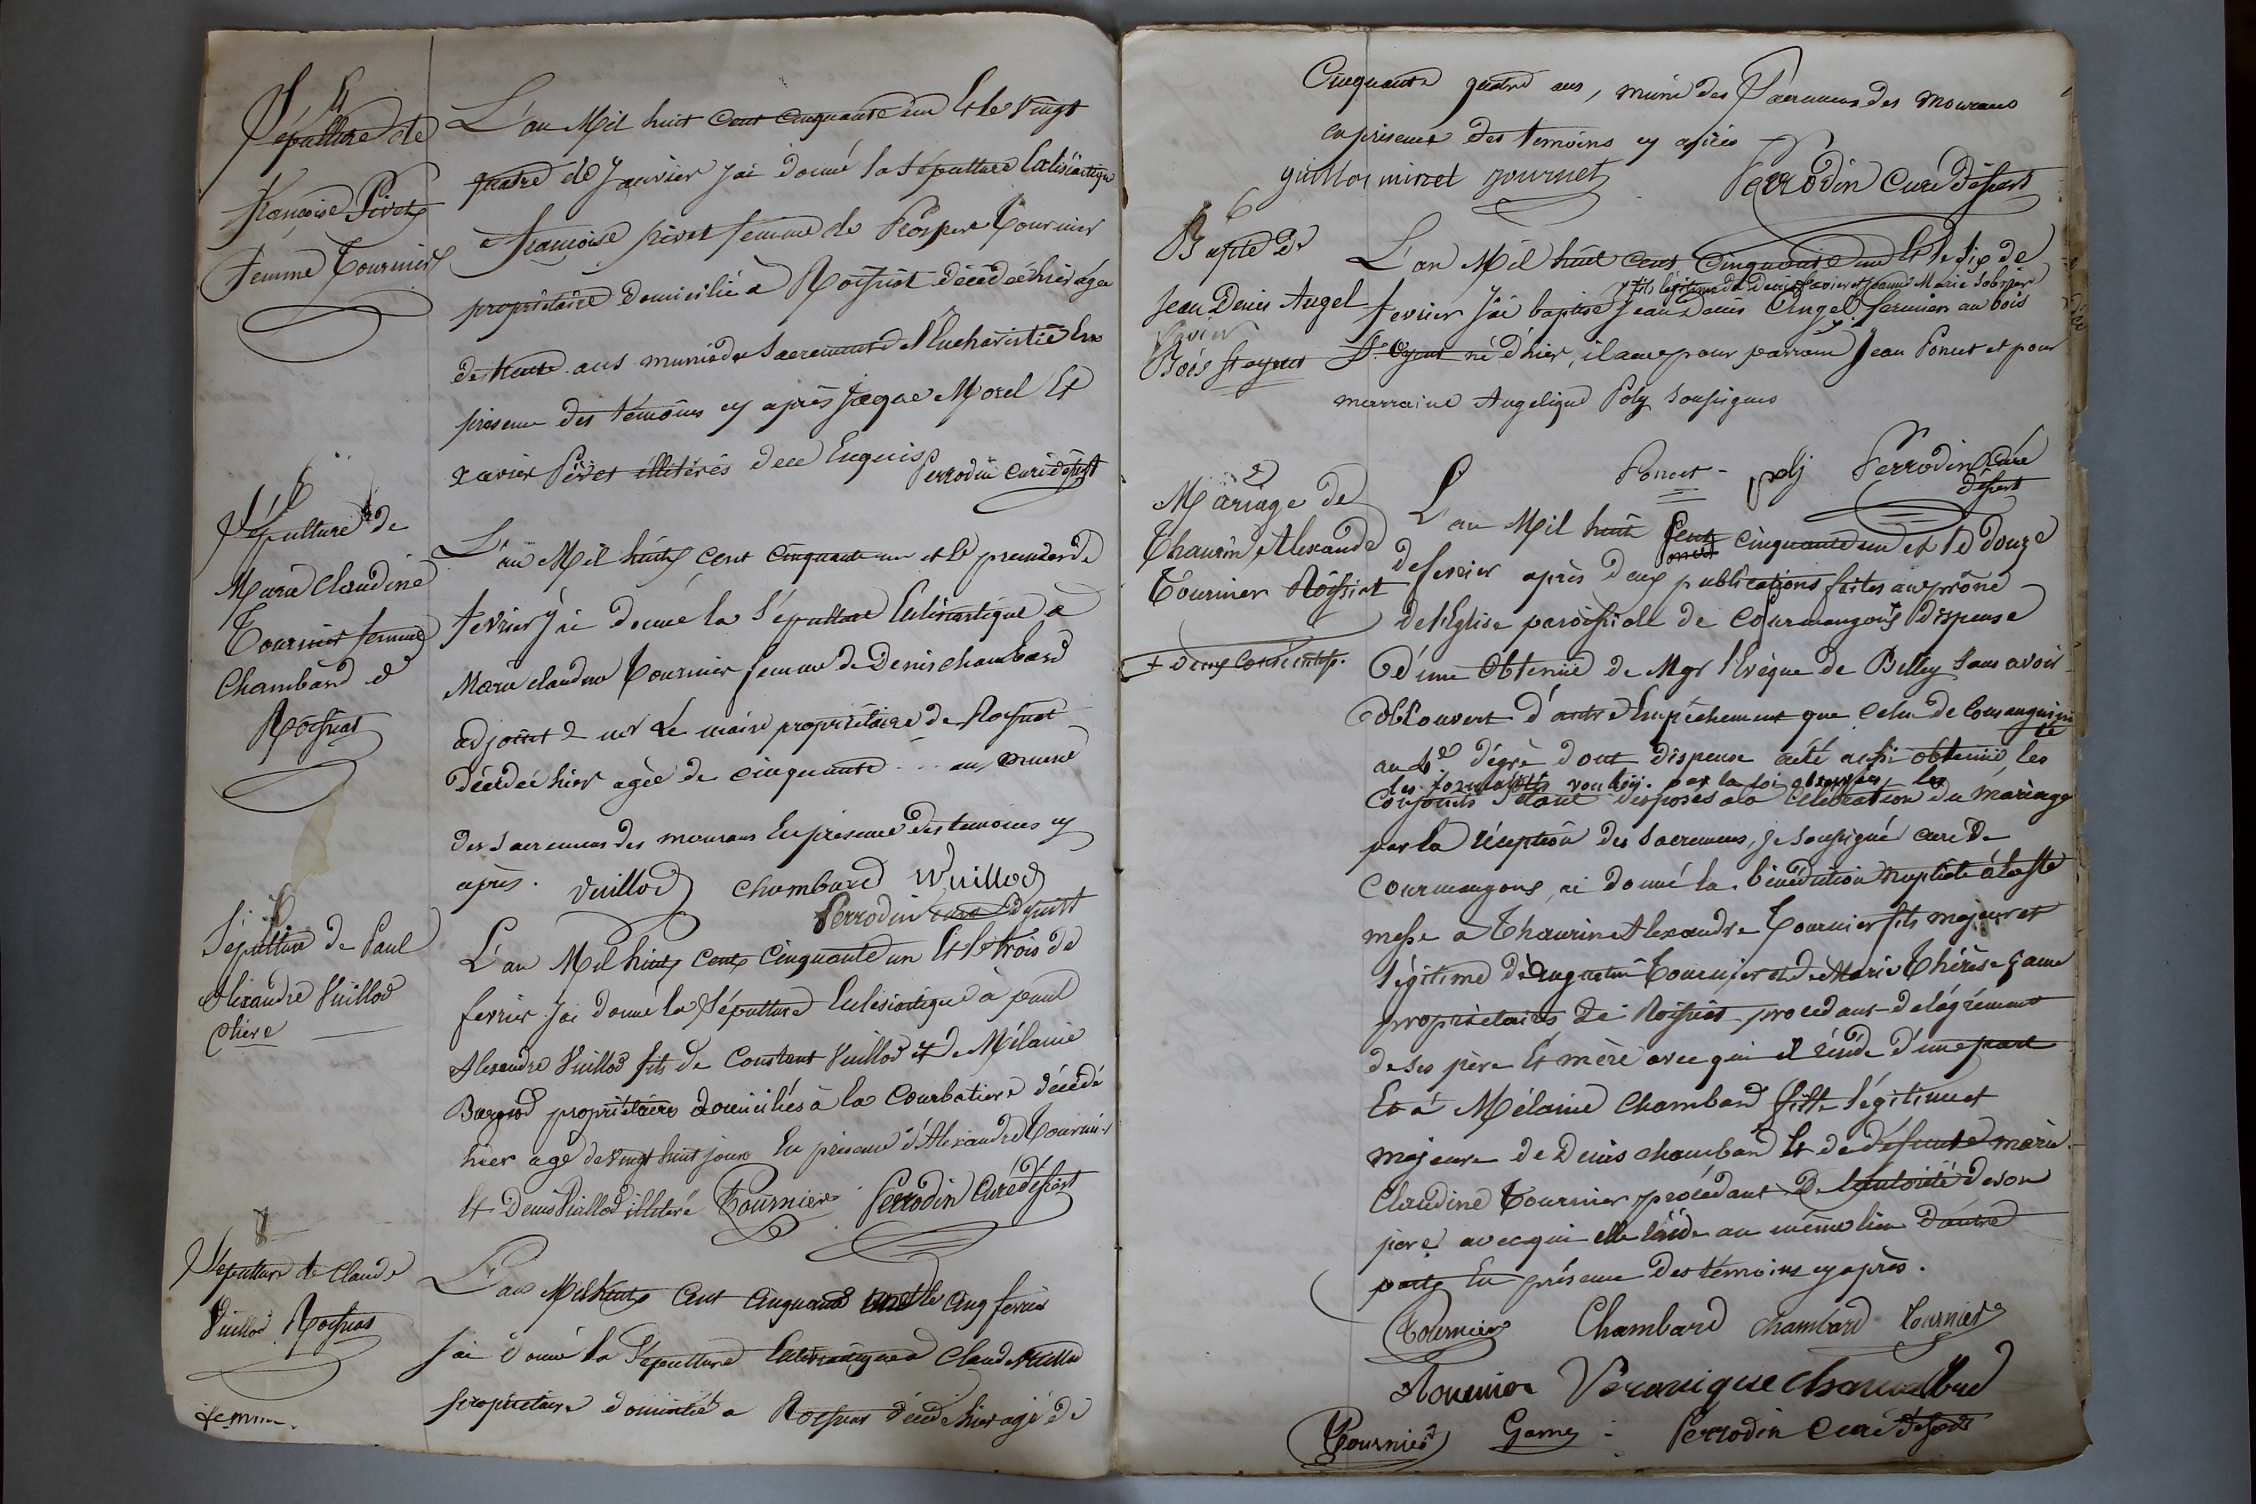 Sépulture de
Françoise Pivet
femme Tournier
L'an Mil huit cent cinquante un Et le vingt
quatre de Janvier j'ai donné la sépulture Eclésiastique
a françoise pivet femme de Prosper Tournier
propriétaire domicilié à Roissiat décédée hier agée
de trente ans munie du Sacrement de l'Eucharistie En
présence des témoins cy après Jacque Morel Et
xavier Pivet illitérés de ce Enquis Perrodin curé desst
6
Sépulture de
Marie Claudine
Tournier femme
Chambard
Roissiat
L'an Mil huit cent cinquante un et le premier de
fevrier j'ai donné la Sépulture Eclésiastique à
Marie claudine Tournier femme de Denis chambard
adjoint à mr Le maire propriétaire de Roissiat
décédée hier agée de cinquante ... ans munie
des sacremens des mourans En présence des temoins cy
après. Vuillod Chambard Vuillod
Perrodin curé desst
Sépulture de Paul
Alexandre Vuillod
L'an Mil huit cent cinquante un Et le trois de
fevrier j'ai donné la Sépulture Eclésiastique à paul
Alexandre Vuillod fils de Constant Vuillod et de Mélanie
propriétaires domiciliés à la Courbatiere décédé
hier agé de vingt huit jours En présence d'Alexandre Tournier
Et Denis Vuillod illitéré Tournier Perrodin Curé desst
8
Sépulture de Claude
Vuillod Roissiat
L'an Mil huit cent cinquante un et le cinq fevrier
j'ai donné la Sépulture Eclésiastique à Claude Vuillod
propriétaire domicilié a Roissiat décédé hier agé de
femme.
Cinquante quatre ans, muni des Sacremens des mourans
en présence des temoins cy après
guillerminet journet Perrodin Curé desst
6
Bapte de
Jean Denis Angel
Bois St ayent
L'an Mil huit cent cinquante un Et le six de
fils légitime de Denis et Jeanne Marie
fevrier j'ai baptisé Jean Denis Angel fermier au bois
né d'hier, il a eu pour parrain Jean Poncet et pour
marraine Angelique Poly soussignés
Poncet - poly Perrodin Curé
desst
2
Mariage de
Thaurin Alexandre
Tournier Roissiat
L'an Mil huit Cent cinquante un et le douze
de fevrier après deux publications faites au prône
de l'Eglise paroissiale de Courmangoux dispense
+ deux consécutifs.
d'une obtenüe de Mgr l'Evêque de Belley sans avoir
découvert d'autre Empêchement que celui de Consanguini
té
au 4e dégré dont dispense a été aussi obtenüe, les
des formalités par la loi observées, les
conjoints s'étant disposés à la célébration du mariage
par la réception des sacremens, je soussigné curé de
Courmangoux, ai donné la bénédiction nuptiale à la Ste
messe a Thaurin Alexandre Tournier fils majeur et
légitime d'Augustin Tournier et de Marie Thérèse Game
propriétaires de Roissiat procédant de l'agrément
de ses père Et mère avec qui il réside d'une part
Et à Mélanie Chambard fille légitime et
majeure de Denis chambard Et de défunte marie
Claudine Tournier procédant de l'autorité de son
pere avec qui elle réside au même lieu d'autre
part En présence des témoins cy après.
Tournier Chambard chambard Tournier
Véronique chambard
Tournier Game Perrodin Curé desst